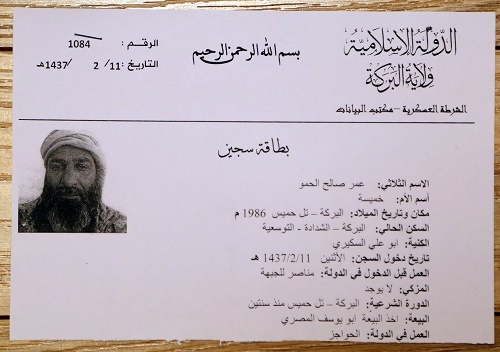 الدولة الإسلامية
ولاية البركة
الشرطة العسكرية – مكتب البيانات
بسم الله الرحمن الرحيم
الرقم : 1084
التاريخ : 11/ 2 /1437هـ
بطاقة سجين
الاسم الثلاثي: عمر صالح الحمو
اسم الأم: خميسة
مكان وتاريخ الميلاد: البركة – تل حميس 1986 م
السكن الحالي: البركة – الشدادة - التوسعية
الكنية: ابو علي السكيري
تاريخ دخول السجن: الأثنين 1437/2/11 هـ
العمل قبل الدخول في الدولة: مناصر للجبهة
المزكي: لا يوجد
الدورة الشرعية: البركة – تل حميس منذ سنتين
البيعة: اخذ البيعة ابو يوسف المصري
العمل في الدولة: الحواجز